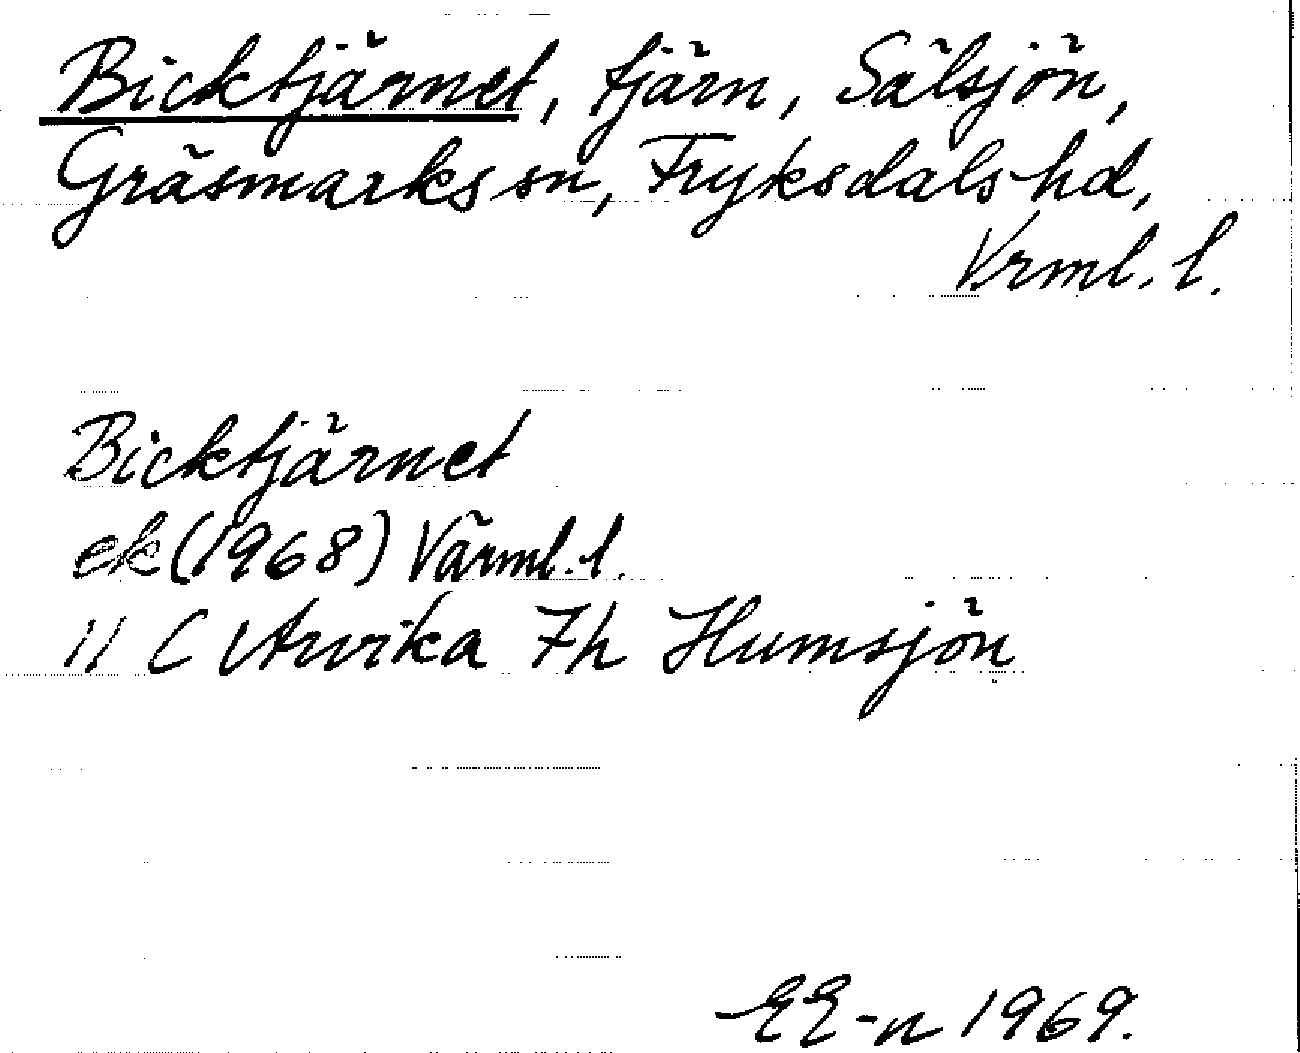 Bicktjärnet, tjärn, Sälsjön,
Gräsmarks sn, Fryksdals hd,
Vrml. l.
Bicktjärnet
ek (1968) Värml. l.
11 C Arvika 7h Humsjön
EE-n 1969.